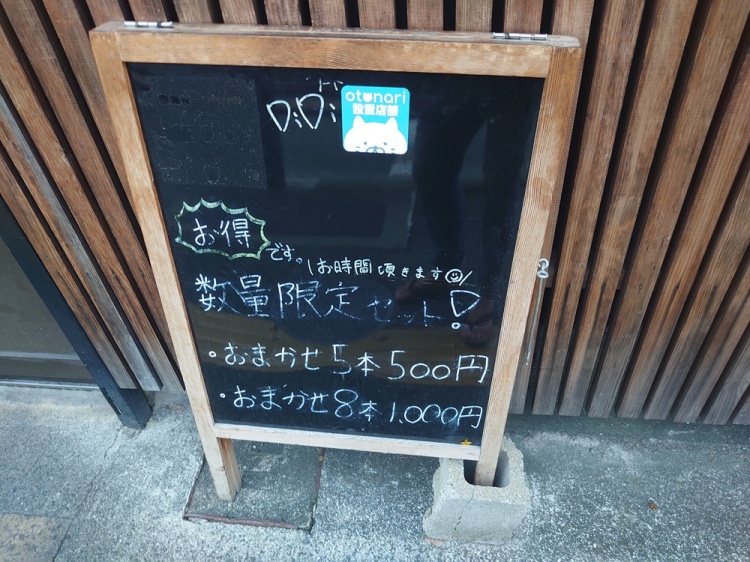 otonari
設置店舗
お得です。
\お時間頂きます☺/
数量限定セット!
・おまかせ5本500円
・おまかせ8本1,000円